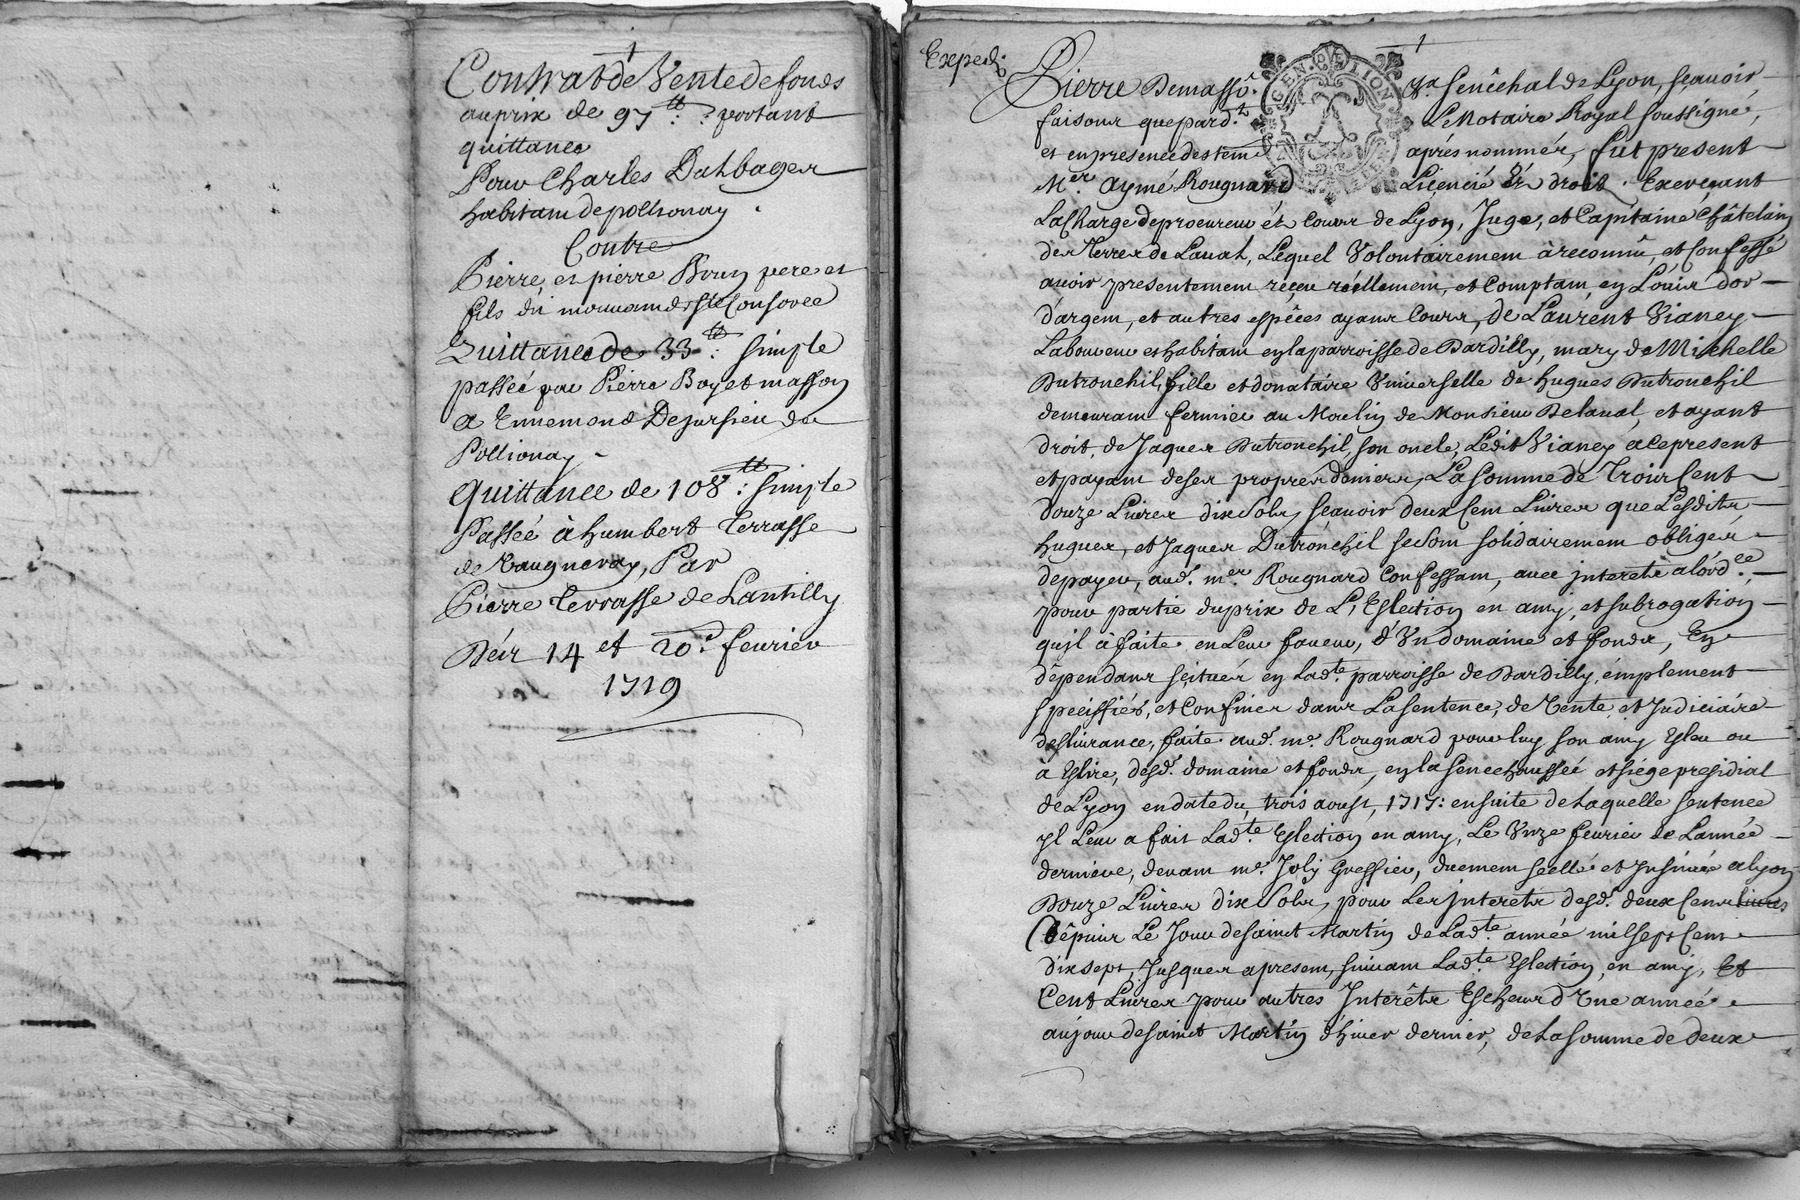 1
Contrat de Vente de fonds
au prix de 97 tt portant
quittance
Pour Charles Dalbager
habitant de pollionay .
Contre
Pierre, et pierre Boun pere et
fils du mouvand Ste Consorce
Quittance de 33 tt : simple
passée par Pierre Boyet masson
a Ennemond Dejursieu de
Pollionay
Quittance de 108 tt : simple
Passée à humbert Terrasse
de Vaugneray, Par
Pierre Terrasse de Lantilly
Des 14 et 20e fevrier
1719
Expedé
1
Pierre Demasso Sr Senêchal de Lyon, sçavoir
faisons que pard. Le Notaire Royal soussigné,
et en presence des tem aprés nommés, fut present
Mer. Aymé Rougnard Licencié és droit . Exerçant
La Charge de procureur és Cours de Lyon, Juge, et Capitaine Châtelain
des Terres de Laval, Lequel Volontairement à reconnu, et Confessé
avoir presentement reçeu réellement, et Comptant en Loüis dor
d'argent, et autres espêces ayans Cours, de Laurent Vianey
Laboureur et habitant en la parroisse de Dardilly, mary de Michelle
Dutronchil, fille et donataire Universelle de hugues Dutronchil
demeurant fermier au Moulin de Monsieur Delaval, et ayant
droit, de Jaques Dutronchil, son oncle, Ledit Vianey à ce present
et payant de ses propres deniers, La somme de Trois Cent
Douze Livres dix Sols, sçavoir deux Cent Livres que Lesdits
hugues, et Jaques Dutronchil se sont solidairement obligés
de payer, aud. mer. Rougnard Confessant, avec interets a lordce.
pour partie du prix de L'Eslection en amy, et subrogation
qu'il à faite en Leur faveur, d'Un domaine et fonds, En
dépendans scitués en Ladte. parroisse de Dardilly, emplement
specifiés, et Confinés dans La Sentence, de Vente, et Judiciaire
deslivrance, faite aud. me. Rougnard pour luy son amy Esleu ou
à Eslire, desd. domaine et fonds, en la Senechaussée et siége presidial
de Lyon en date du, trois aoust, 1717: ensuite de Laquelle sentence
Il Leur a fait Ladte. Eslection en amy, Le Unze fevrier de L'année
derniere, devant me. Joly Greffier, duement scellé et Insinuée a Lyon
Douze Livres dix Sols, pour Les Interets desd. deux Cens livres
Depuis Le Jour de Saint Martin de Ladte. année mil sept Cent
dix sept, Jusques a present, suivant Ladte. Eslection, en amy, Et
Cent Livres pour autres Interêts Escheus d'Une année
au jour de Saint Martin d'hiver dernier, de La somme de deux